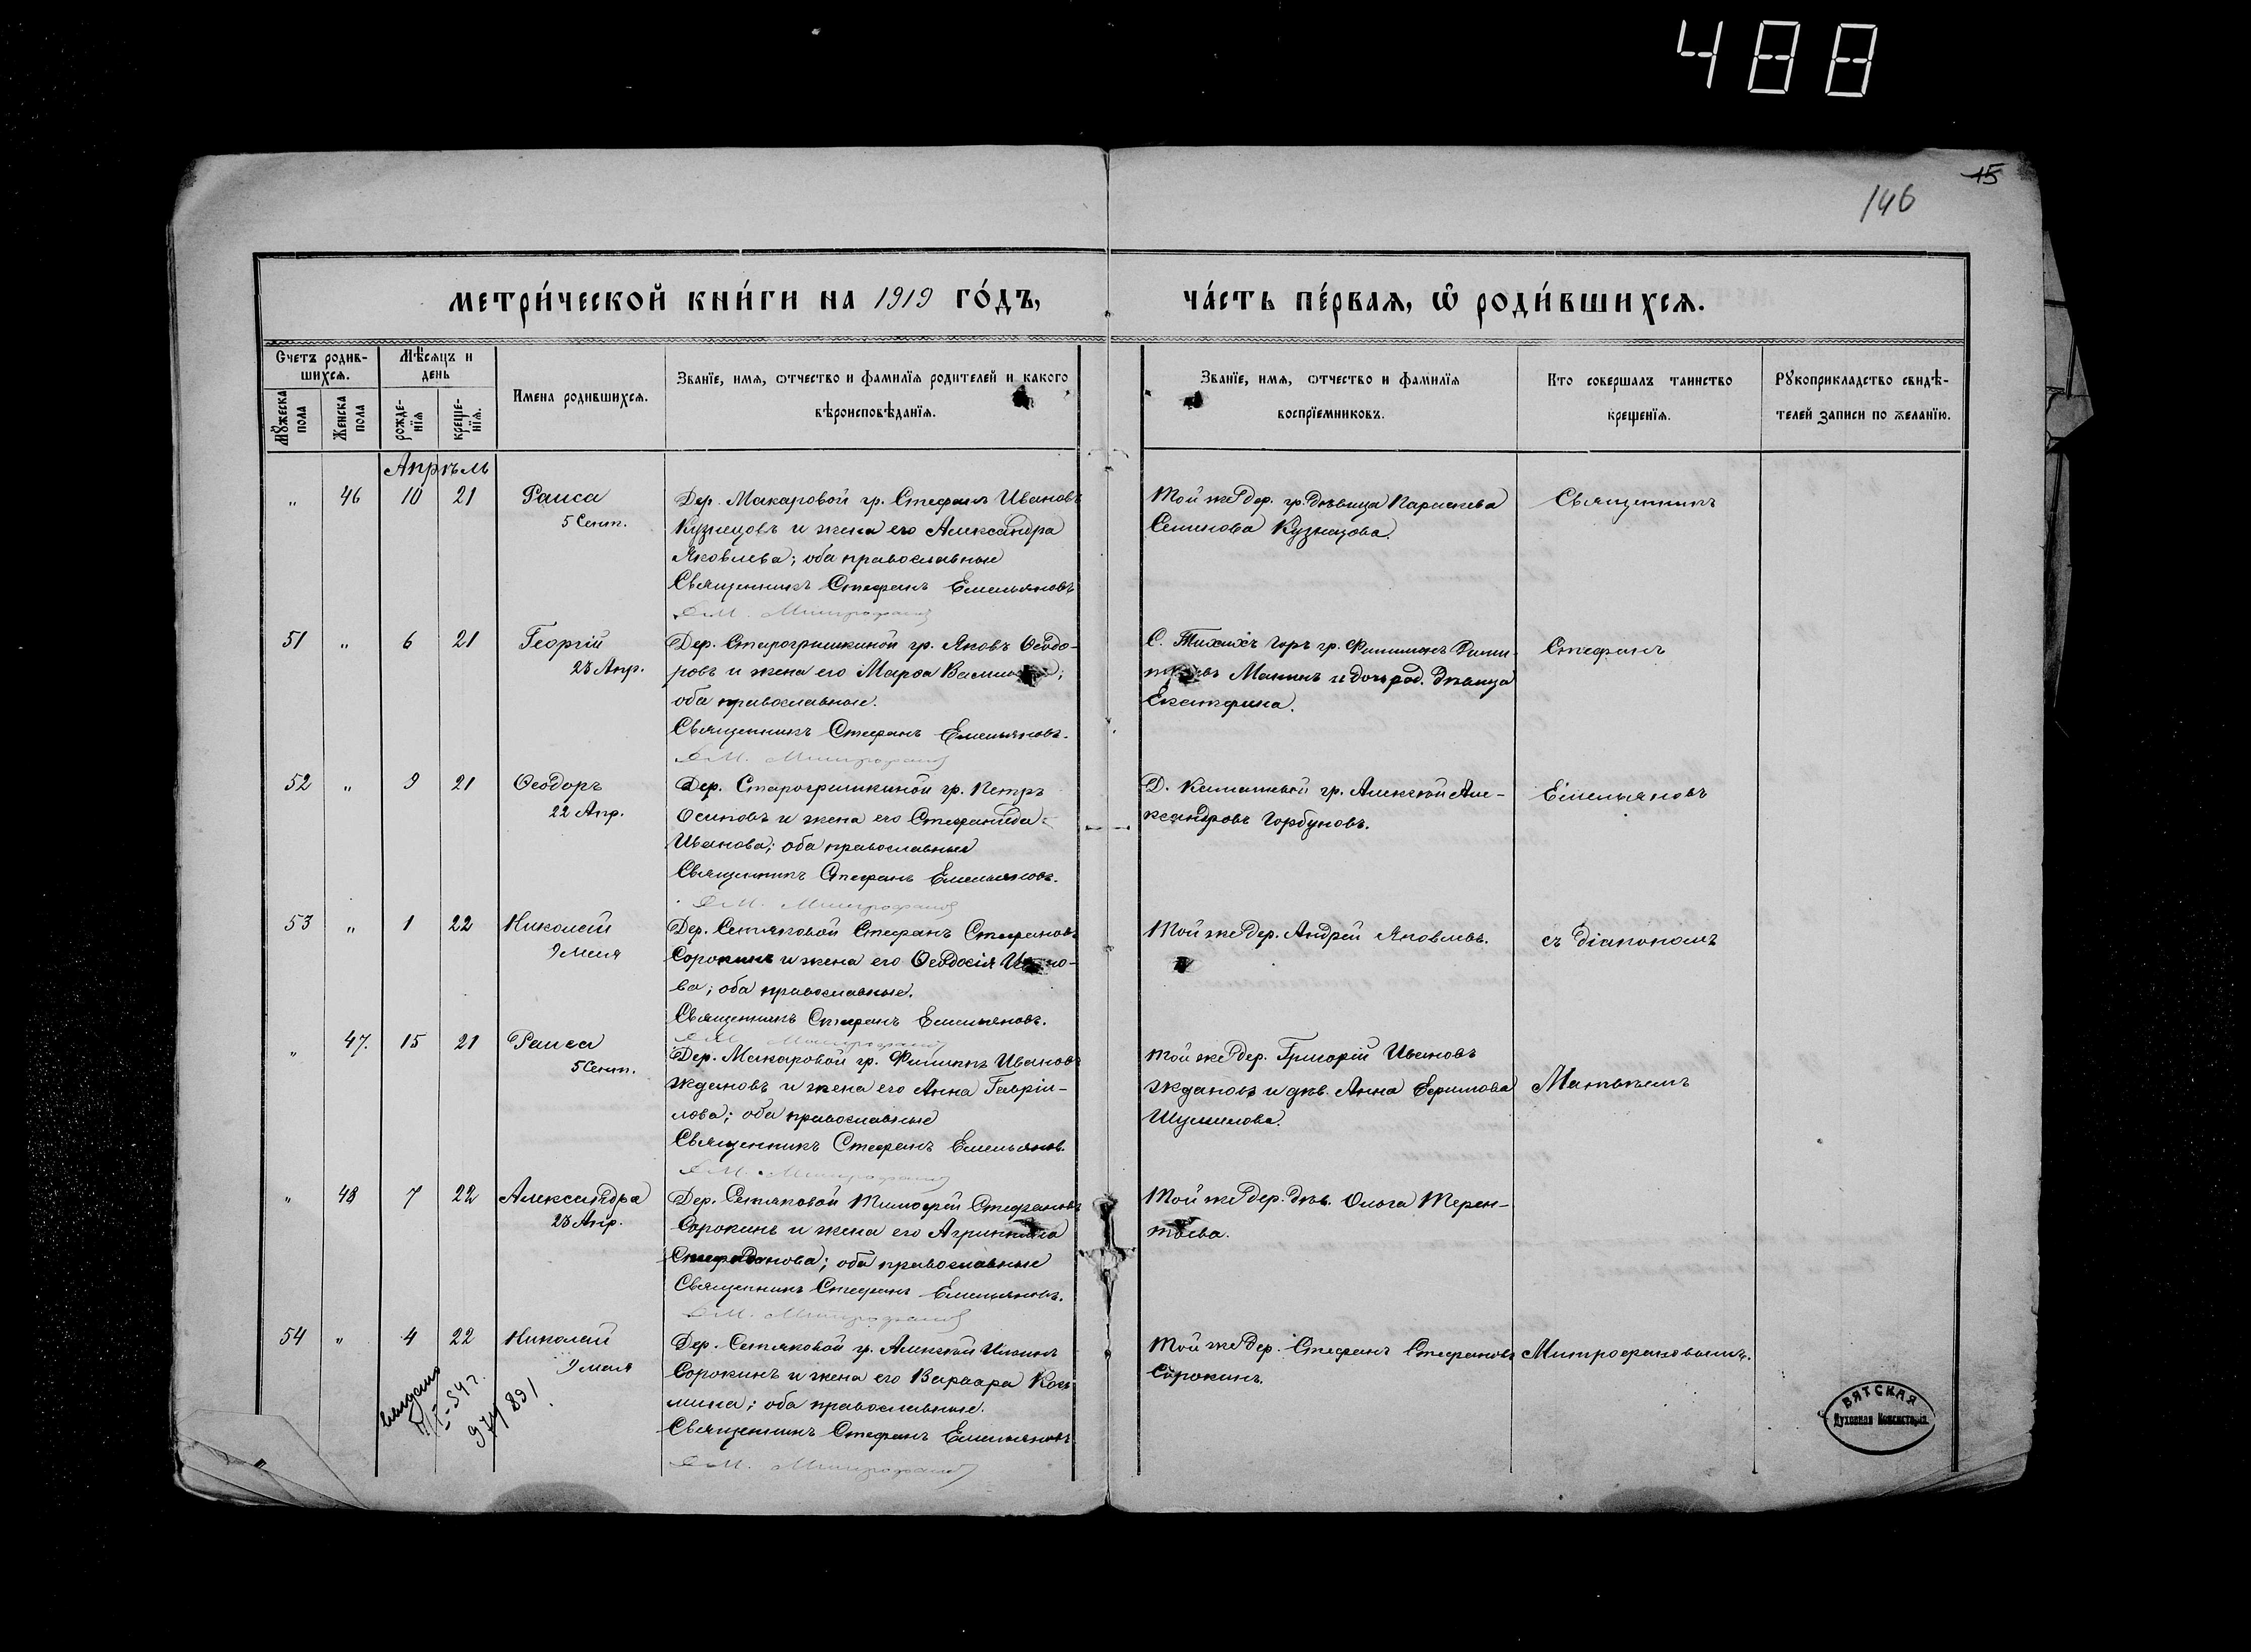 488
15
146
МЕТРИ́ЧЕСКОЙ КНИ́ГИ НА 1919 ГО́ДЪ,
ЧА́СТЬ ПЕ́РВАЯ, Ѡ РОДИ́ВШИХСЯ.
Счетъ родив-
шихся.
Мѣсяцъ и
день
Мужеска
пола
Женска
пола
рожде-
нія
креще-
нія.
Имена родившихся.
Званіе, имя, отчество и фамилія родителей и какого
вѣроисповѣданія.
Званіе, имя, отчество и фамилія
воспріемниковъ.
Кто совершалъ таинство
крещенія.
Рукоприкладство свидѣ-
телей записи по желанію.
Апрѣль
„ 46 10 21 Раиса
5 Сент.
Дер. Макаровой гр. Стефанъ Ивановъ
Кузнецовъ и жена его Александра
Яковлева; оба православные
Священникъ Стефанъ Емельяновъ
Д. М. Митрофановъ
Той же дер. гр. дѣвица Параскева
Семенова Кузнецова.
Священникъ
51 „ 6 21 Георгій
23 Апр.
Дер. Старогришкиной гр. Яковъ Ѳеодо-
ровъ и жена его Марѳа
оба православные.
Священникъ Стефанъ Емельяновъ.
Д. М. Митрофановъ
С. Тихихъ Горъ гр. Филимонъ
Макинъ и дочь дѣвица
Екатерина.
Стефанъ
52 „ 9 21 Ѳеодоръ
22 Апр.
Дер. Старогришкиной гр. Петръ
Осиповъ и жена его Стефанида
Иванова; оба православные
Священникъ Стефанъ Емельяновъ.
Д. М. Митрофановъ
Д. гр. Алексѣй Але-
ксандровъ Горбуновъ.
Емельяновъ
53 „ 1 22 Николай
9 Мая
Дер. Сетяковой Стефанъ Стефановъ
Сорокинъ и жена его Ѳеодосія
ва; оба православные.
Священникъ Стефанъ Емельяновъ.
Д. М. Митрофановъ
Той же дер. Андрей Яковлевъ.
съ діакономъ
„ 47. 15 21 Раиса
5 Сент.
Дер. Макаровой гр. Филиппъ Ивановъ
Ждановъ и жена его Анна Гавріи-
лова; оба православные
Священникъ Стефанъ Емельянов.
Д. М. Митрофановъ
Той же дер. Григорій Ивановъ
Ждановъ и дѣв. Анна Ефимова
Шумилова.
Матѳѣемъ
„ 48 7 22 Александра
23 Апр.
Дер. Сетяковой Тимофей Стефановъ
Сорокинъ и жена его Агриппина
оба православные
Священникъ Стефанъ Емельяновъ.
Д. М. Митрофановъ
Той же дер. дѣв. Ольга Терен-
тьева.
54 „ 4 22 Николай
9 мая
Дер. Сетяковой гр. Алексѣй
Сорокинъ и жена его Варвара Кось-
мина; оба православные.
Священникъ Стефанъ Емельяновъ
Д. М. Митрофановъ
Той же дер. Стефанъ Стефановъ
Сорокинъ.
Митрофановымъ.
ВЯТСКАЯ
Духовная Консисторія